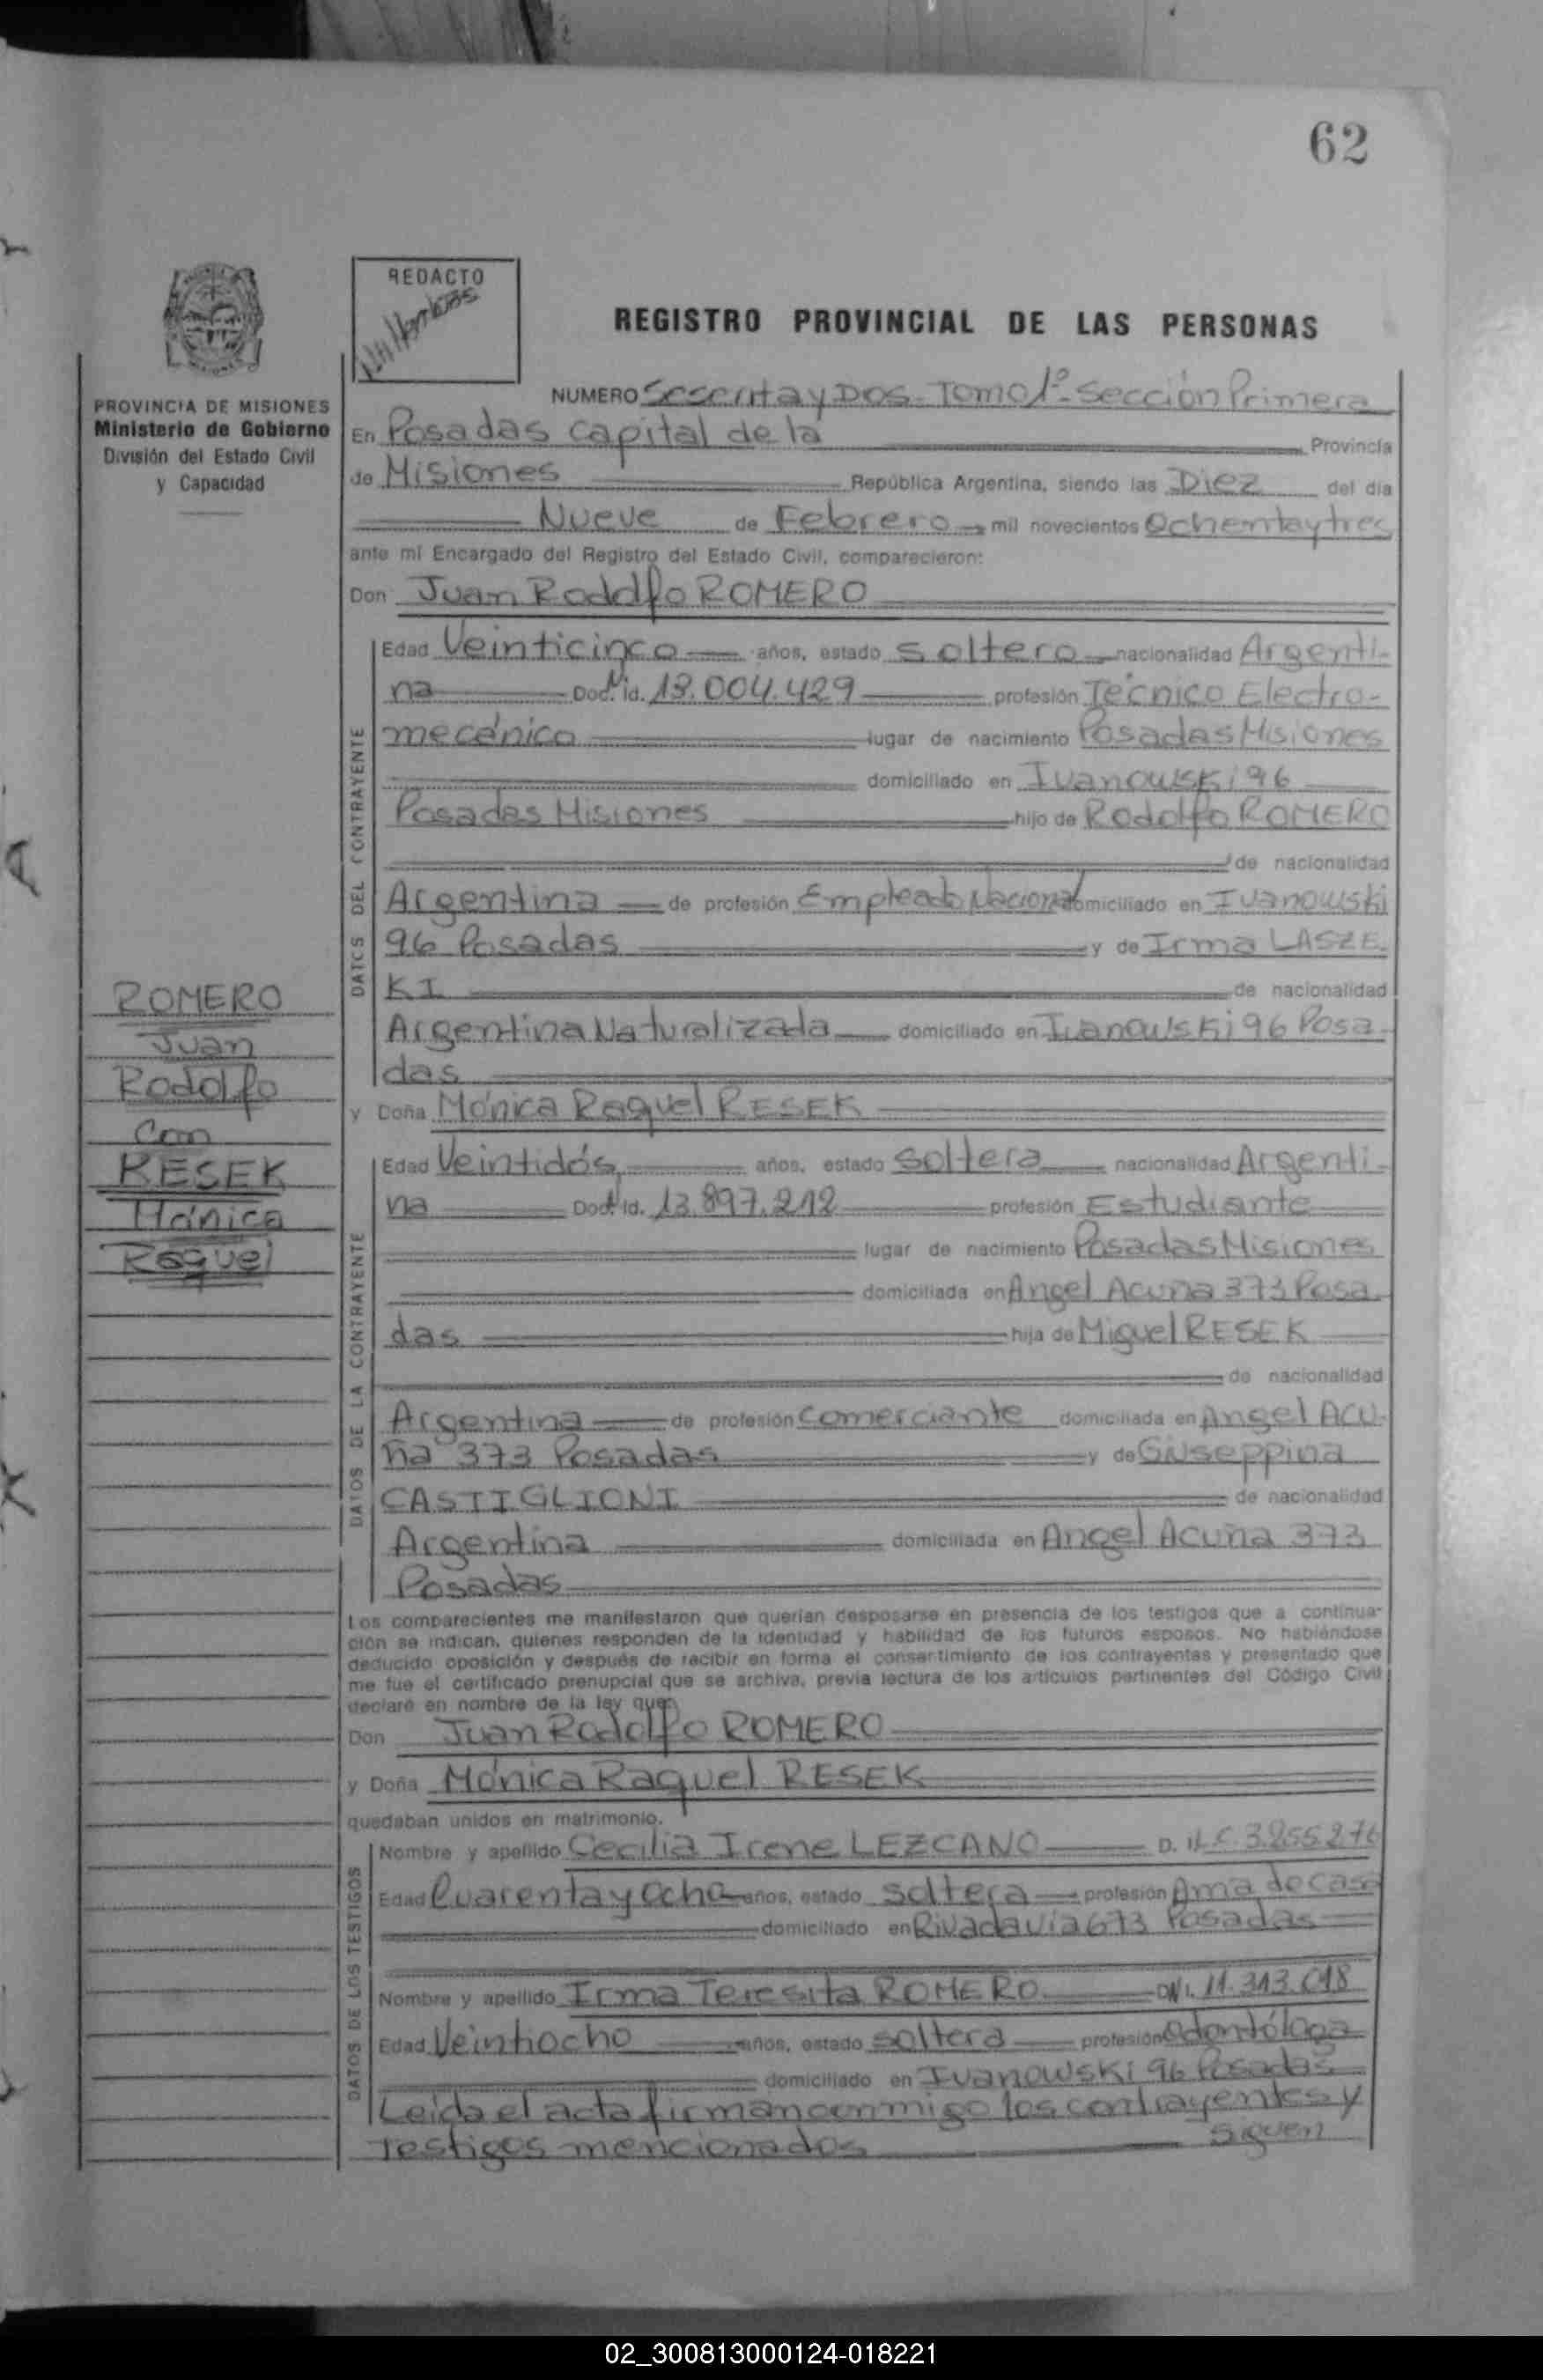 62
REDACTO
REGISTRO PROVINCIAL DE LAS PERSONAS
PROVINCIA DE MISIONES
Ministerio de Gobierno
División del Estado Civil
y Capacidad
NUMERO Sesenta y Dos - Tomo 1º - Sección Primera
En Posadas Capital de la Provincia
de Misiones República Argentina, siendo las Diez del día
Nueve de Febrero mil novecientos Ochenta y tres
ante mí Encargado del Registro del Estado Civil, comparecieron:
Don Juan Rodolfo ROMERO
DATOS DEL CONTRAYENTE
Edad Veinticinco años, estado soltero nacionalidad Argenti-
na Doc. Id. 13.004.429 profesión Técnico Electro-
mecánico lugar de nacimiento Posadas Misiones
domiciliado en Ivanowski 96
Posadas Misiones hijo de Rodolfo ROMERO
de nacionalidad
Argentina de profesión Empleado Nacional domiciliado en Ivanowski
96 Posadas y de Irma LASZE-
KI de nacionalidad
Argentina Naturalizada domiciliado en Ivanowski 96 Posa-
das
ROMERO
Juan
Rodolfo
Con
RESEK
Mónica
Raquel
y Doña Mónica Raquel RESEK
DATOS DE LA CONTRAYENTE
Edad Veintidós años, estado soltera nacionalidad Argenti-
na Doc. Id. 13.897.212 profesión Estudiante
lugar de nacimiento Posadas Misiones
domiciliada en Angel Acuña 373 Posa-
das hija de Miguel RESEK
de nacionalidad
Argentina de profesión comerciante domiciliada en Angel Acu-
ña 373 Posadas y de Giuseppina
CASTIGLIONI de nacionalidad
Argentina domiciliada en Angel Acuña 373
Posadas
Los comparecientes me manifestaron que querían desposarse en presencia de los testigos que a continua-
ción se indican, quienes responden de la identidad y habilidad de los futuros esposos. No habiéndose
deducido oposición y después de recibir en forma el consertimiento de los contrayentes y presentado que
me fue el certificado prenupcial que se archiva, previa lectura de los artículos pertinentes del Código Civil
declaré en nombre de la ley que:
Don Juan Rodolfo ROMERO
y Doña Mónica Raquel RESEK
quedaban unidos en matrimonio.
DATOS DE LOS TESTIGOS
Nombre y apellido Cecilia Irene LEZCANO D. I. L.C. 3.255.276
Edad Cuarenta y Ocho años, estado soltera profesión Ama de casa
domiciliado en Rivadavia 673 Posadas
Nombre y apellido Irma Teresita ROMERO DNI. 11.313.018
Edad Veintiocho años, estado soltera profesión Odontóloga
domiciliado en Ivanowski 96 Posadas
Leída el acta firman conmigo los contrayentes y
Testigos mencionados Siguen
02_300813000124-018221